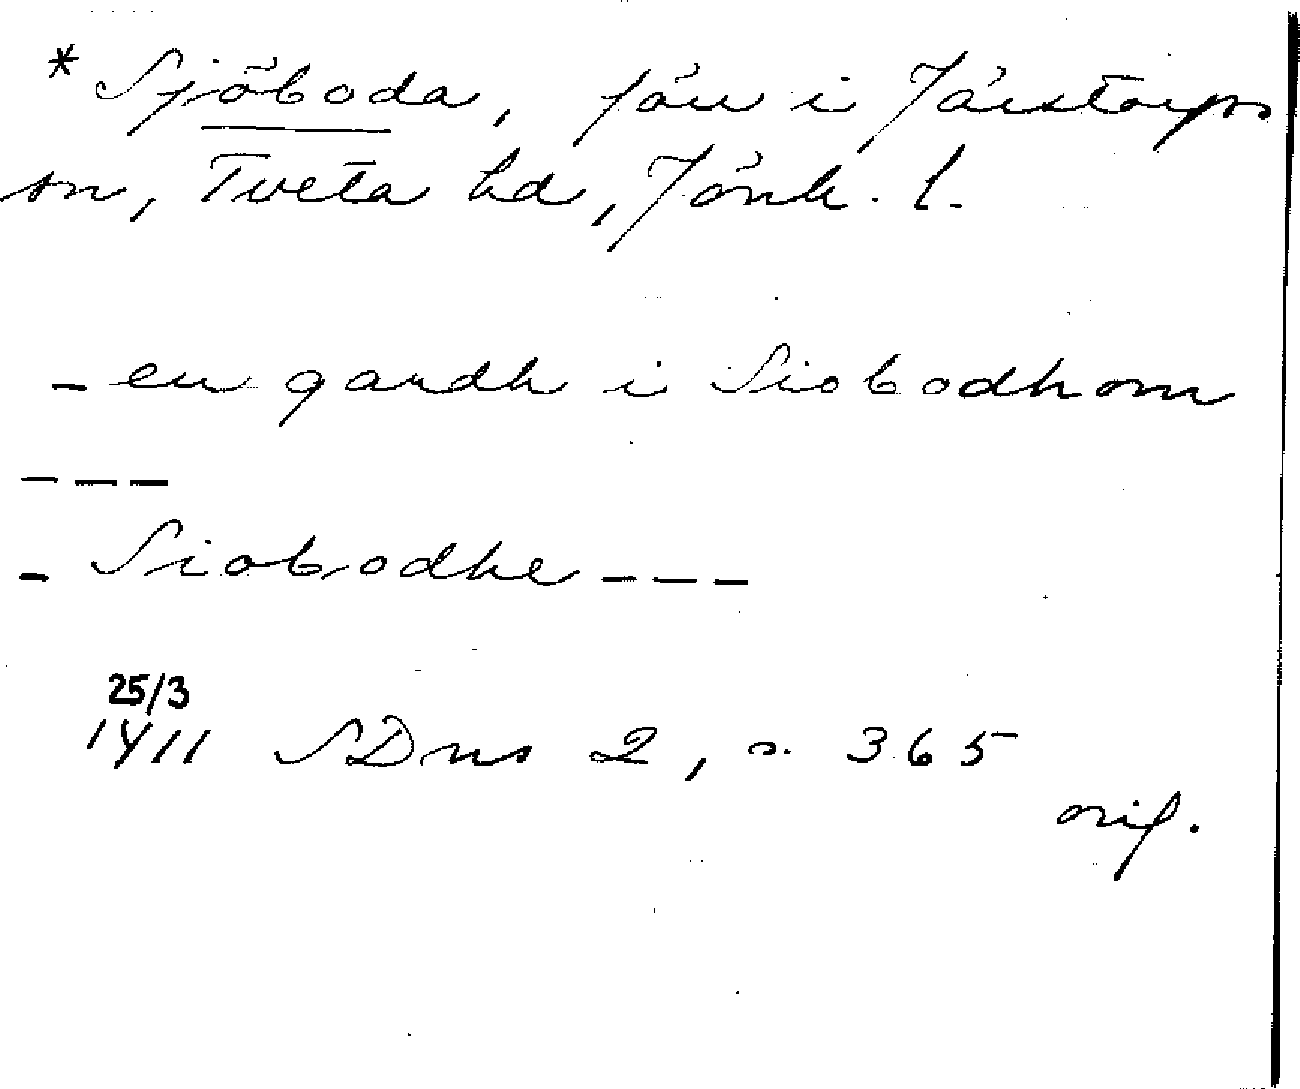 * Sjöboda, förr i Järstorps
sn, Tveta hd, Jönk. l.
- en gardh i Siobodhom
---
- Siobodhe ---
25/3
1411 SDns 2, s. 365
orig.